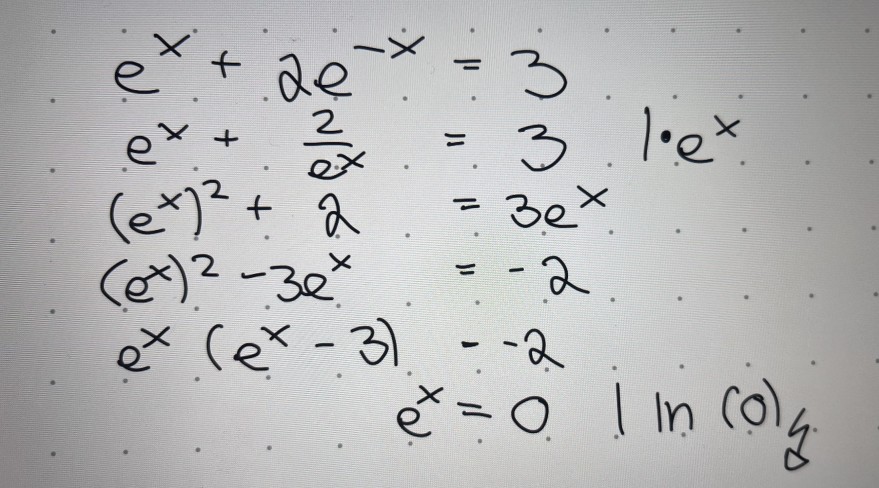 eˣ + 2e⁻ˣ = 3
eˣ + 2/eˣ = 3 | · eˣ
(eˣ)² + 2 = 3eˣ
(eˣ)² - 3eˣ = -2
eˣ (eˣ - 3) = -2
eˣ = 0 | ln (0) ↯